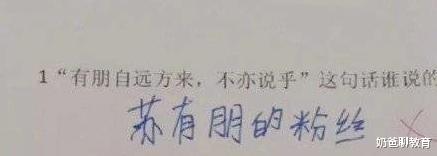 1“有朋自远方来，不亦说乎”这句话谁说的
苏有朋的粉丝
奶爸聊教育